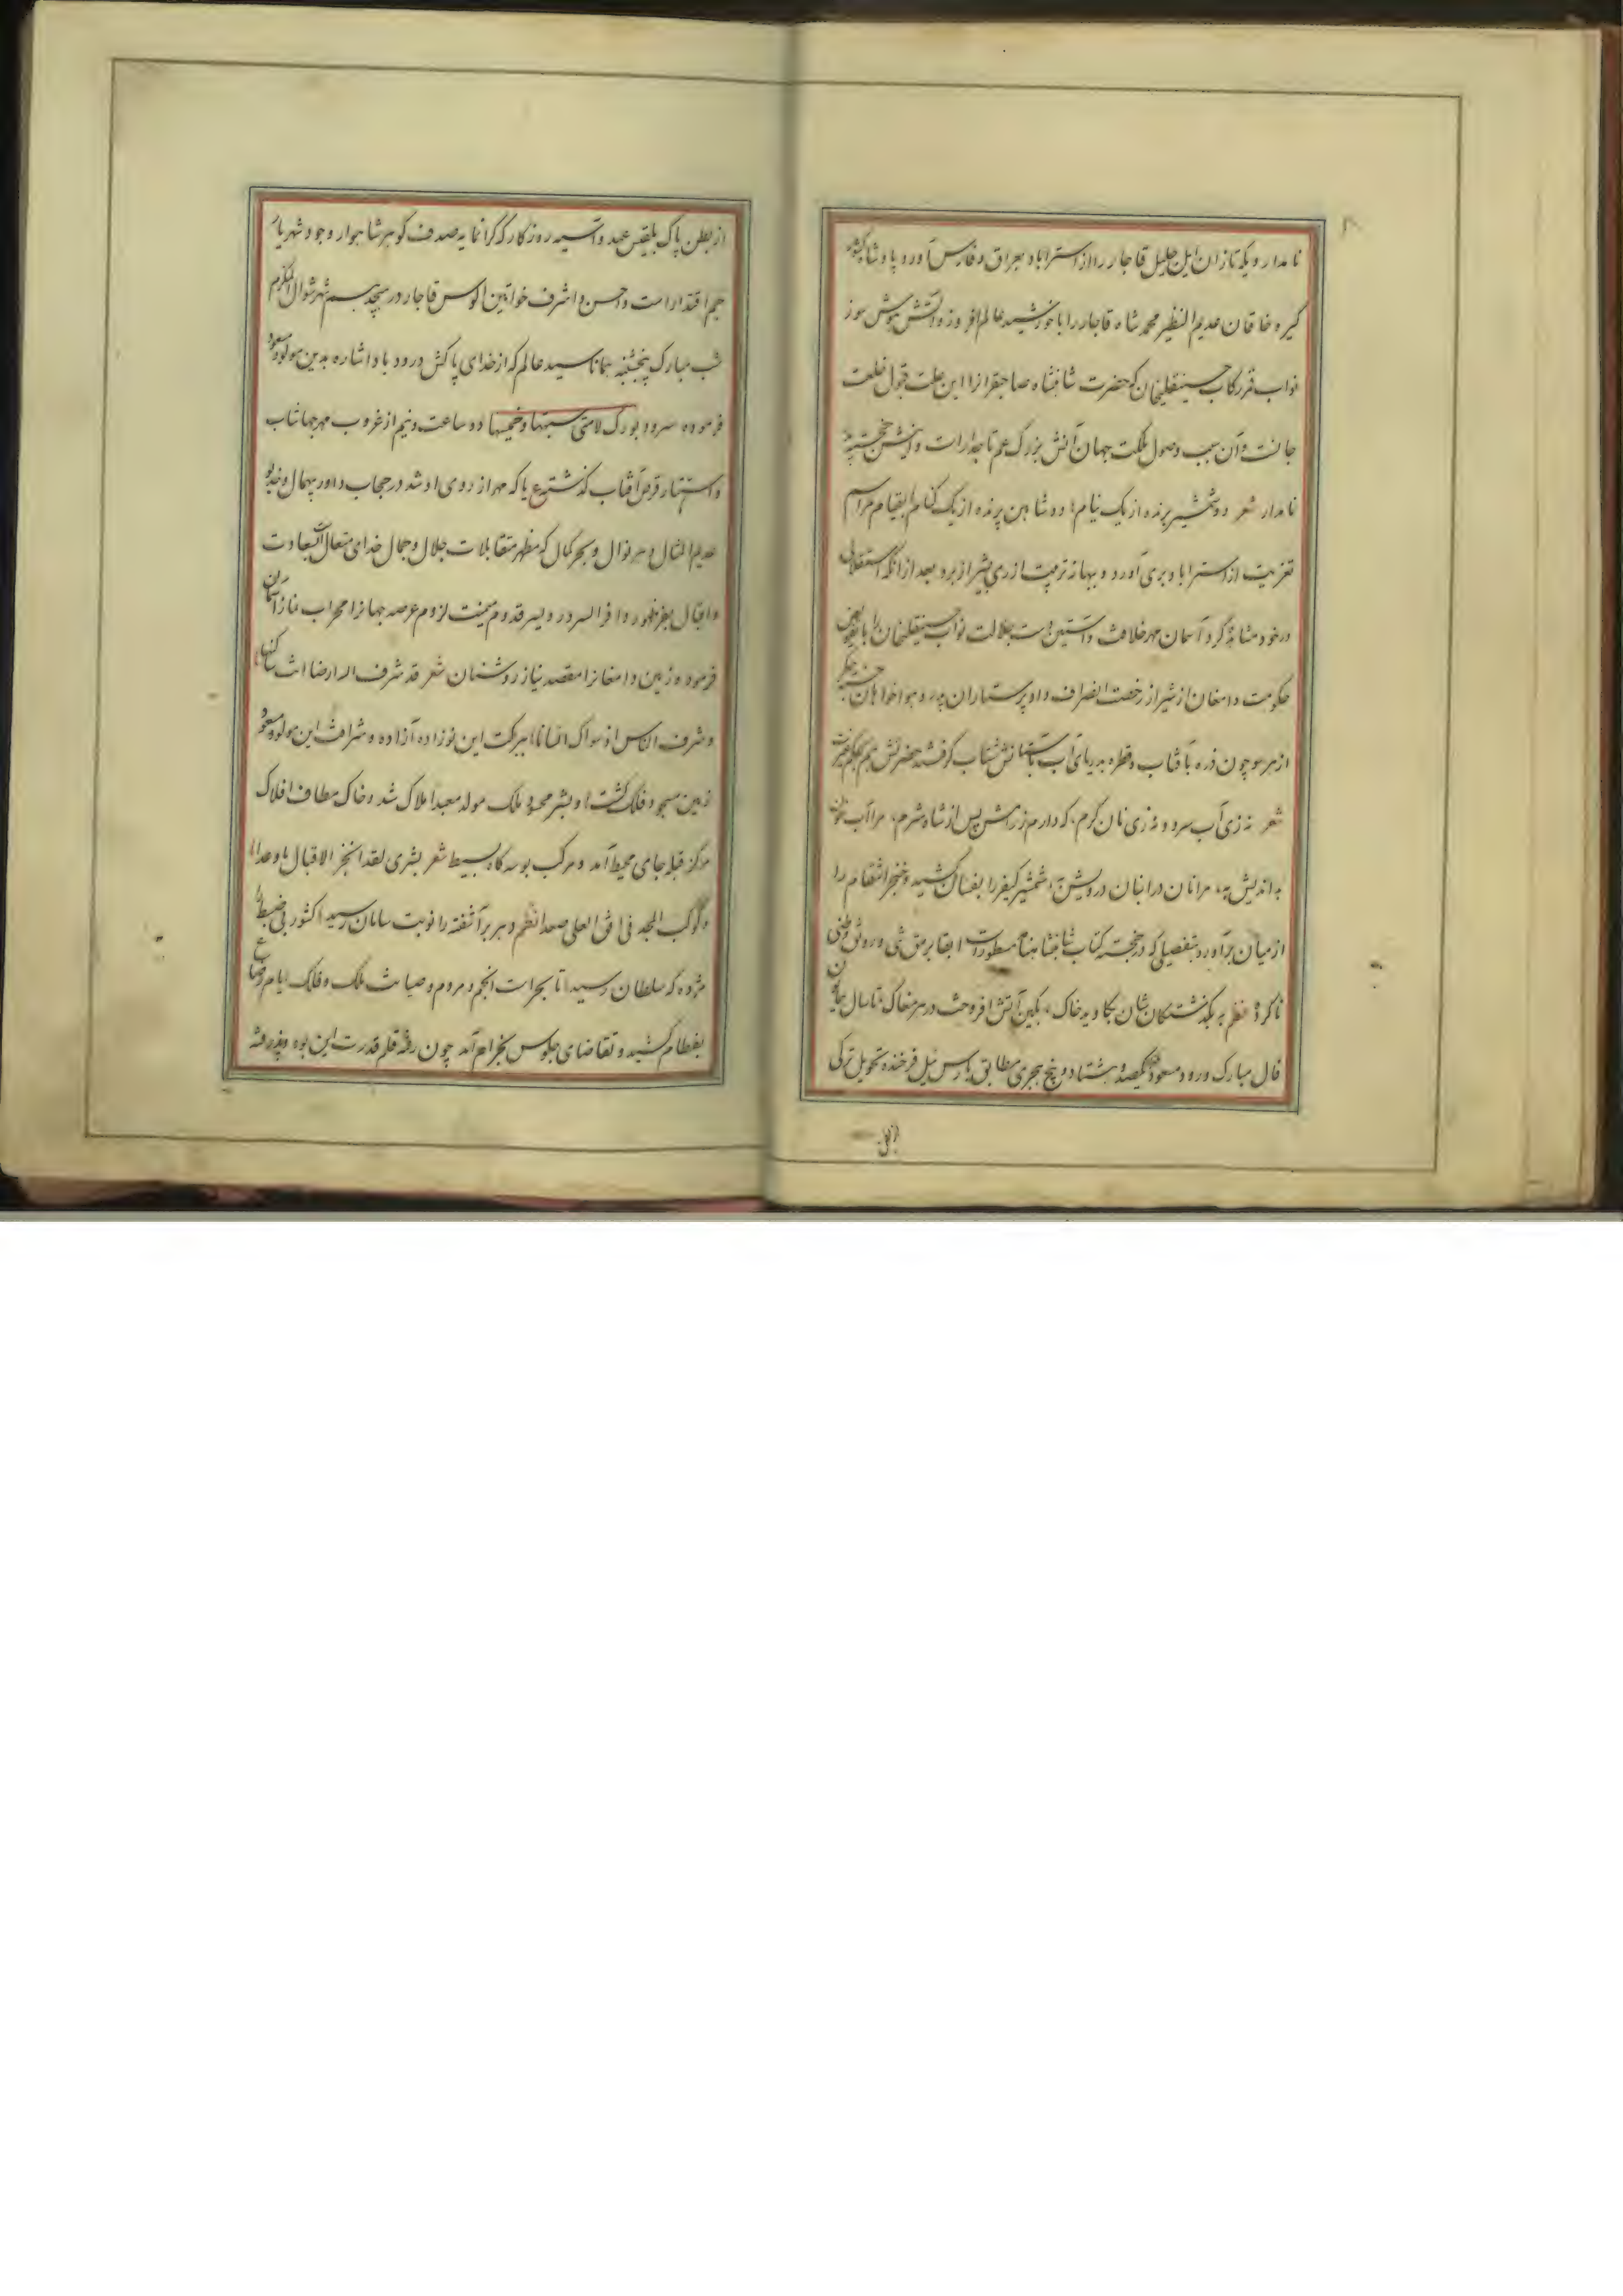 نامدار و یکه تازان ایل جلیل قاجار را از استراباد بعراق و فارس آورد پادشاه کشور
گیر و خاقان عدیم النظیر محمد شاه قاجار را با خورشید عالم افروز و آتش هوش سوز
نواب قزرکاب حسینقلیخان که حضرت شاهنشاه صاحبقرانرا این علت قبول خلعت
جانست و آن سبب وصول ملکت جهان آنش بزرگ عم تاجدارات و اینش خجسته
نامدار شعر دو شمشیر برنده از یک نیام دو شاهین پرنده از یک کنام بقیام مراسم
تعزیت از استراباد بری آورد و ببهانه تربیت از ری بشیراز برد بعد از آنکه استقلالی
در خود مشاهده کرد آسمان مهر خلافت و آستین دست جلالت نواب حسینقلیخان را
حکومت دامغان از شیراز رخصت انصراف داد پرستاران پدر و هواخواهان
از هر سو چون ذره بآفتاب و قطره بدریای آب شتاب گرفتند حضرتش هم بحکم غیرت
شعر نه زی آب سرد و نه زی نان گرم که دارم ز رامش پس از شاه شرم مرا آب خون
بداندیش به مرا نان در انبان درویش به شمشیر کیفر را بفسان کشید و خنجر انتقام را
از میان برآورد بتفصیلی که در خجسته کتاب شاهنشاهنامه مسطور است ابقا بر رمق شی و رونق وطنی
ناکرده نظم به بگذشتگان شان بکاوید خاک بکین آتش افروخت در هر مغاک تا سال همایون
فال مبارک ورود مسعود یکصد و هشتاد و پنج هجری مطابق بارس ئیل فرخنده تحویل ترکی
از بطن
از بطن پاک بلقیس عهد و آسیه روزگار که گرانمایه صدف گوهر شاهوار وجود شهریار
جم اقتدار است و احسن و اشرف خواتین الوس قاجار در هیجدهم شهر شوال المکرم
شب مبارک پنجشنبه همانا سید عالم که از خدای پاکش درود باد اشاره بدین مولود مسعود
فرموده سرود بورک لامتی سبتها و خمیسها دو ساعت و نیم از غروب مهر جهانتاب
و استتار قرص آفتاب گذشته ع یا که مهر از روی او شد در حجاب داور بیهمال و خدیو
عدیم المثال و مهر نوال و بحر کمال که مظهر متقابلات جلال و جمال خدای متعال است بسعادت
و اقبال بفر ظهور وافر السرور و یسر قدوم میمنت لزوم عرصه جهانرا محراب نماز آسمان
فرموده زمین دامغانرا مقصد نیاز روشنان شعر قد شرف الله ارضا انت ساکنها
و شرف الناس اذ سواک انسانا ببرکت این نوزاده آزاده و شرافت این مولود مسعود
زمین مسجود فلک گشت و بشر محسود ملک مولد معبد املاک شد و خاک مطاف افلاک
مرکز قبله جای محیط آمد و مرکب بوسه گاه بسیط شعر بشری لقد انجز الاقبال ما وعدا
و کوکب المجد فی افق العلی صعدا نظم دهر برآشفته را نوبت سامان رسید کشور بی ضبط را
مژده که سلطان رسید تا بحراست انجم و مردم و صیانت ملک و فلک ایام رضاع
بفطام کشید و تقاضای جلوس بخرام آمد چون رقم قلم قدرت این بود و پذیرفته